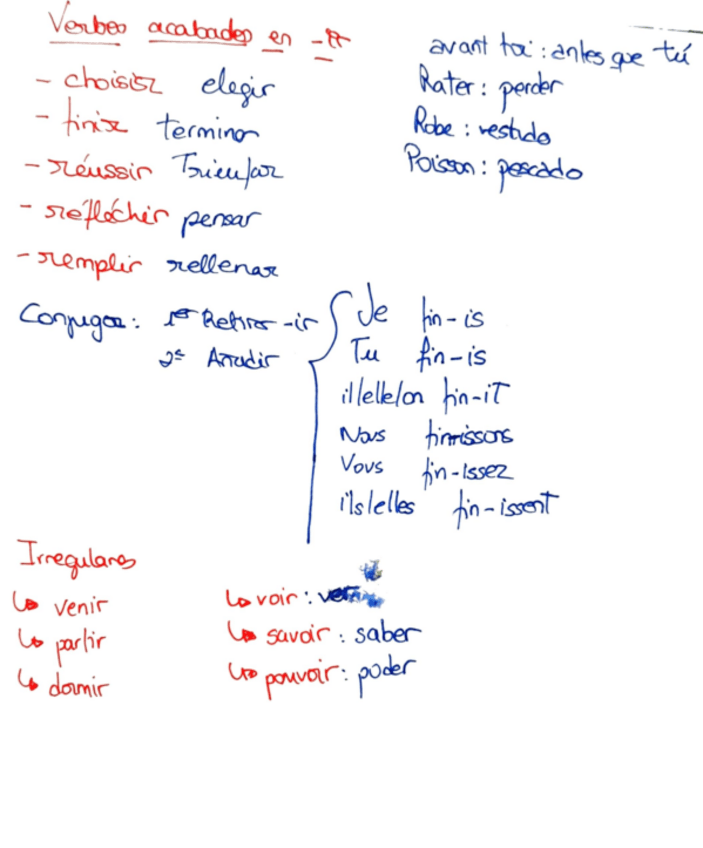 Verbos acabados en -ir
- choisir elegir
- finir terminar
- réussir Triunfar
- réfléchir pensar
- remplir rellenar
avant toi : antes que tú
Rater : perder
Robe : vestido
Poisson : pescado
Conjugar : 1º Retirar -ir
2º Añadir
Je fin-is
Tu fin-is
il/elle/on fin-iT
Nous finissons
Vous fin-issez
ils/elles fin-issent
Irregulares
↳ venir
↳ partir
↳ dormir
↳ voir : ver
↳ savoir : saber
↳ pouvoir : poder